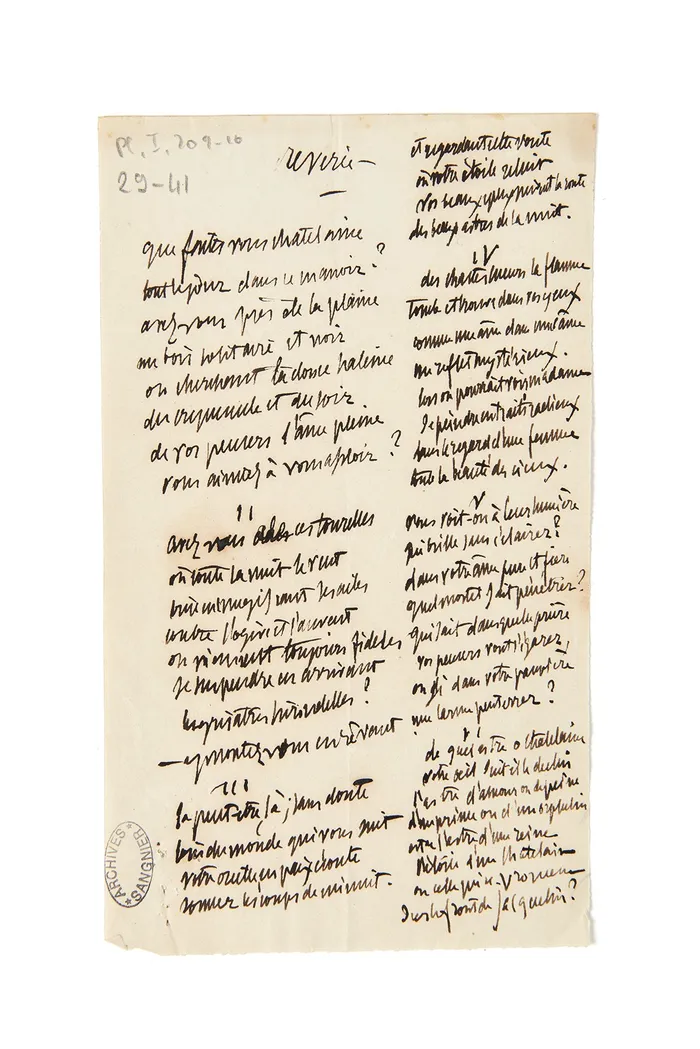 Pl. I, 209-10
29-41
reverie
que faites vous chatelaine
tout le jour dans ce manoir ?
avez vous près de la plaine
un bois solitaire et noir
ou cherchant la douce haleine
du crepuscule et du soir
de vos pensers l'âme pleine
vous aimiez à vous assoir ?
II
avez vous des tourelles
où toute la nuit le vent
vient en mugissant les ailes
contre l'ogive et l'auvent
ou viennent toujours fideles
se suspendre en arrivant
les hirondelles ?
— y montez vous en rêvant
III
la peut-être, là, sans doute
loin du monde qui vous suit
votre oreille en paix écoute
sonner les coups de minuit.
et regardant cette voute
où votre étoile reluit
vos beaux yeux la voute
des beaux astres de la nuit.
IV
des chastes lueurs la flamme
tombe et trouve dans vos yeux
comme une âme dans une âme
un reflet mystérieux.
lors on pourrait voir madame
se peindre en traits radieux
dans le regard d'une femme
toute la beauté des cieux.
V
vous voit-on à leur lumière
qui brille sans s'éclairer ?
dans votre âme pure et fiere
quel mortel sait pénétrer ?
qui sait dans quelle prière
vos pensers vont s'égarer,
ou si dans votre paupière
une larme peut errer ?
VI
de quel astre o chatelaine
votre oeil suit il le declin
l'astre d'amour ou de peine
d'un prince ou d'un orphelin
est-ce l'astre d'une reine
l'étoile d'un chatelain
ou celle qui
sur le front de jacquelin ?
ARCHIVES SANGNIER